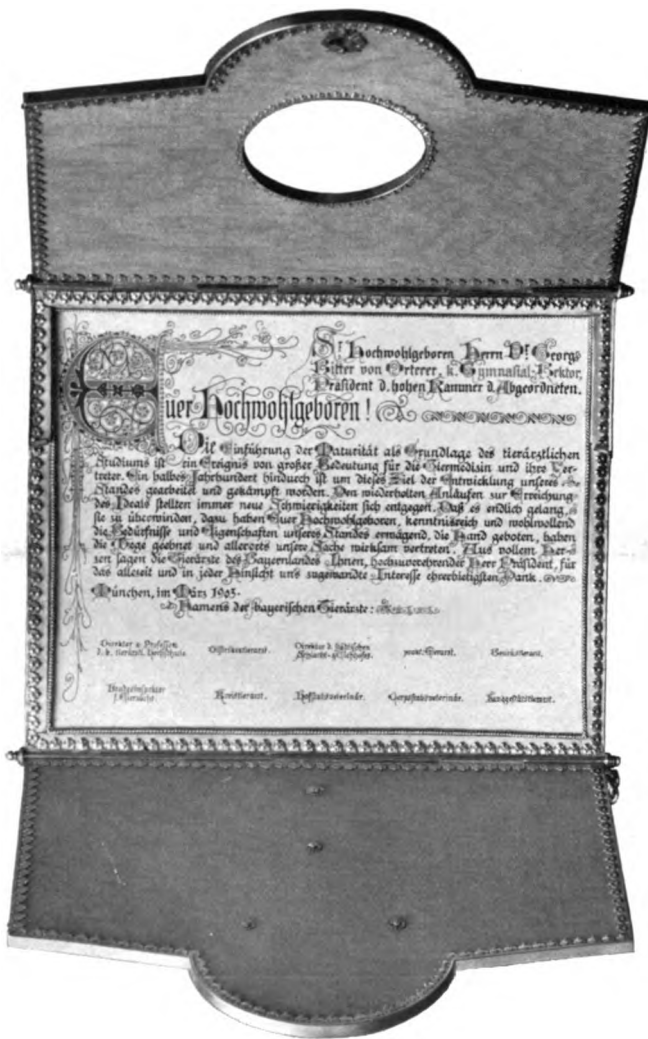 Sr. Hochwohlgeboren Herrn Dr. Georg
Ritter von Orterer, k. Gymnasial-Rektor,
Präsident d. hohen Kammer d. Abgeordneten.
Euer Hochwohlgeboren!
Die Einführung der Maturität als Grundlage des tierärztlichen
Studiums ist ein Ereignis von großer Bedeutung für die Tiermedizin und ihre Ver-
treter. Ein halbes Jahrhundert hindurch ist um dieses Ziel der Entwicklung unseres
Standes gearbeitet und gekämpft worden. Den wiederholten Anläufen zur Erreichung
des Ideals stellten immer neue Schwierigkeiten sich entgegen. Daß es endlich gelang,
sie zu überwinden, dazu haben Euer Hochwohlgeboren, kenntnisreich und wohlwollend
die Bedürfnisse und Eigenschaften unseres Standes erwägend, die Hand geboten, haben
die Wege geebnet und allerorts unsere Sache wirksam vertreten. Aus vollem Her-
zen sagen die Tierärzte des Bayernlandes Ihnen, hochzuverehrender Herr Präsident, für
das allseit und in jeder Hinsicht uns zugewandte Interesse ehrerbietigsten Dank.
München, im März 1903.
Namens der bayerischen Tierärzte:
Direktor u. Professor Distriktstierarzt. Direktor d. städtischen prakt. Tierarzt. Bezirkstierarzt.
d. k. tierärztl. Hochschule. Schlacht- u. Viehhofes.
Kreistierarzt. Hofstabsveterinär. Corpsstabsveterinär. Landgestütstierarzt.